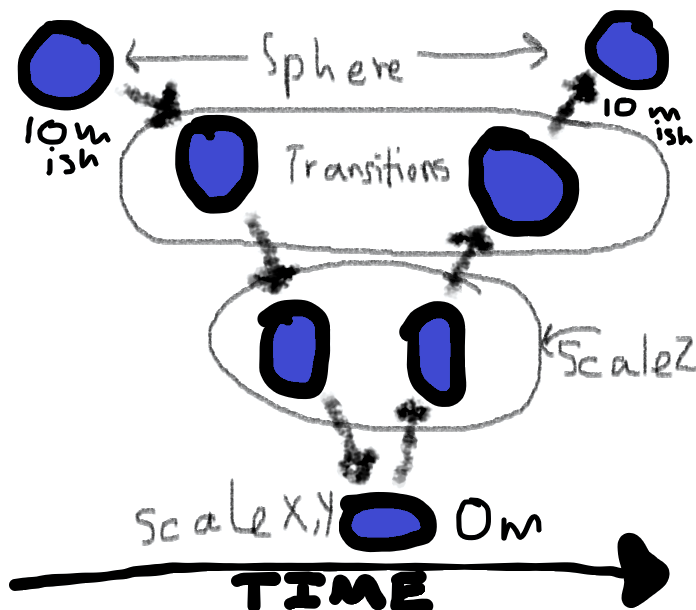 Sphere
10m
ish
10m
ish
Transitions
Scale Z
Scale X,Y
0m
TIME